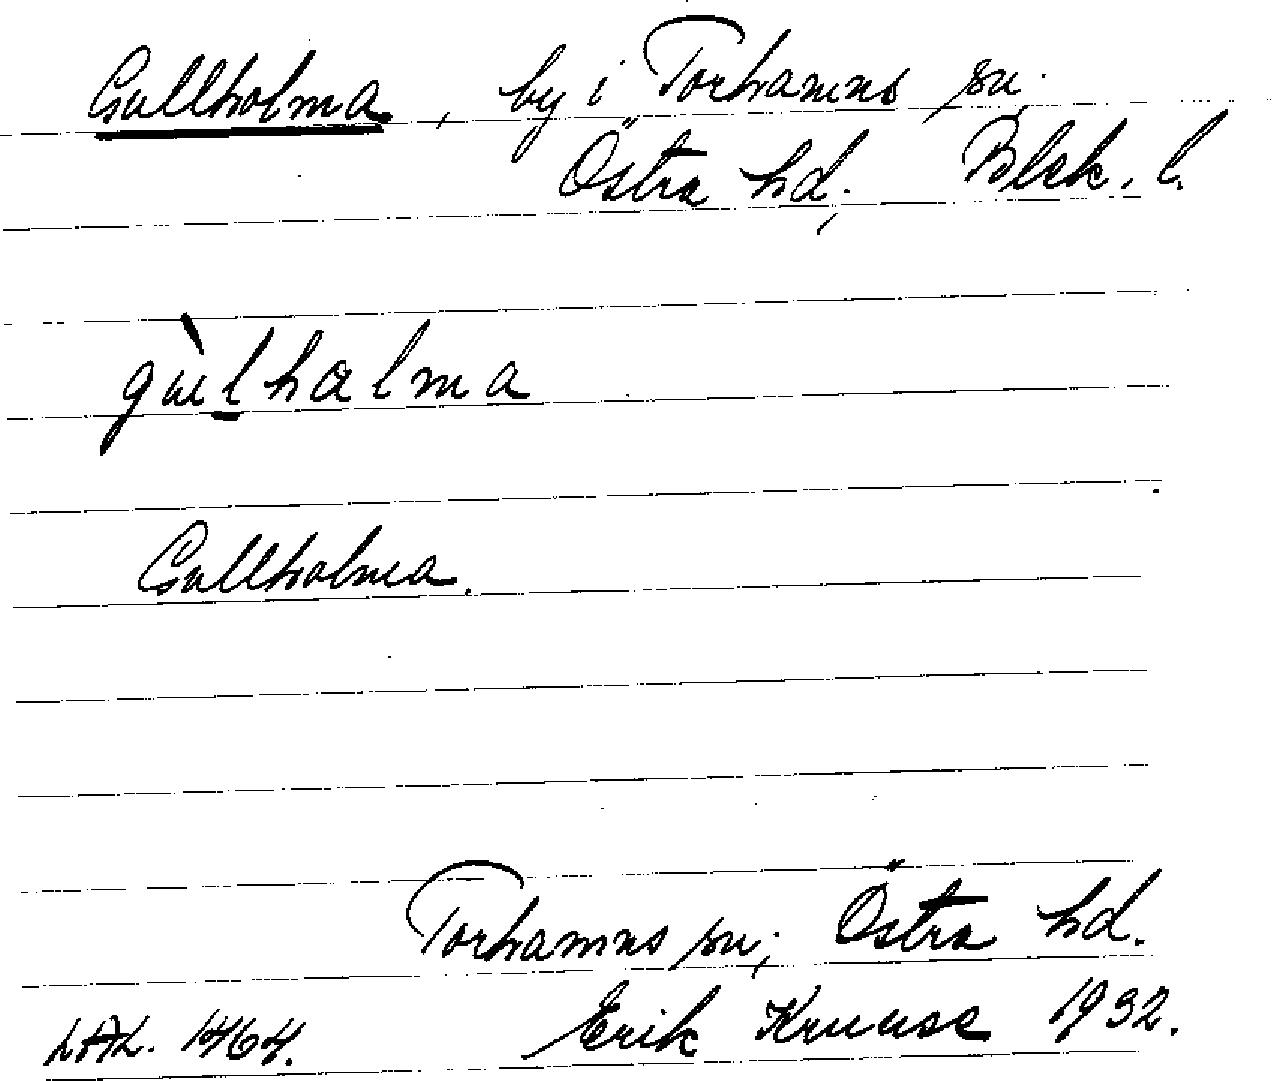 Gullholma, by i Torhamns sn.
Östra hd, Blek. l.
gùlhalma
Gullholma.
Torhamns sn; Östra hd.
LAL. 1464. Erik Kruuse 1932.